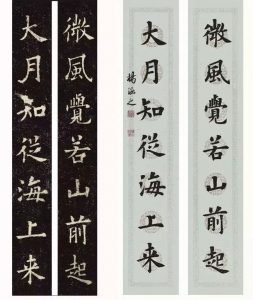 微風覺若山前起
大月知從海上来
楊之
微風覺若山前起
大月知從海上来